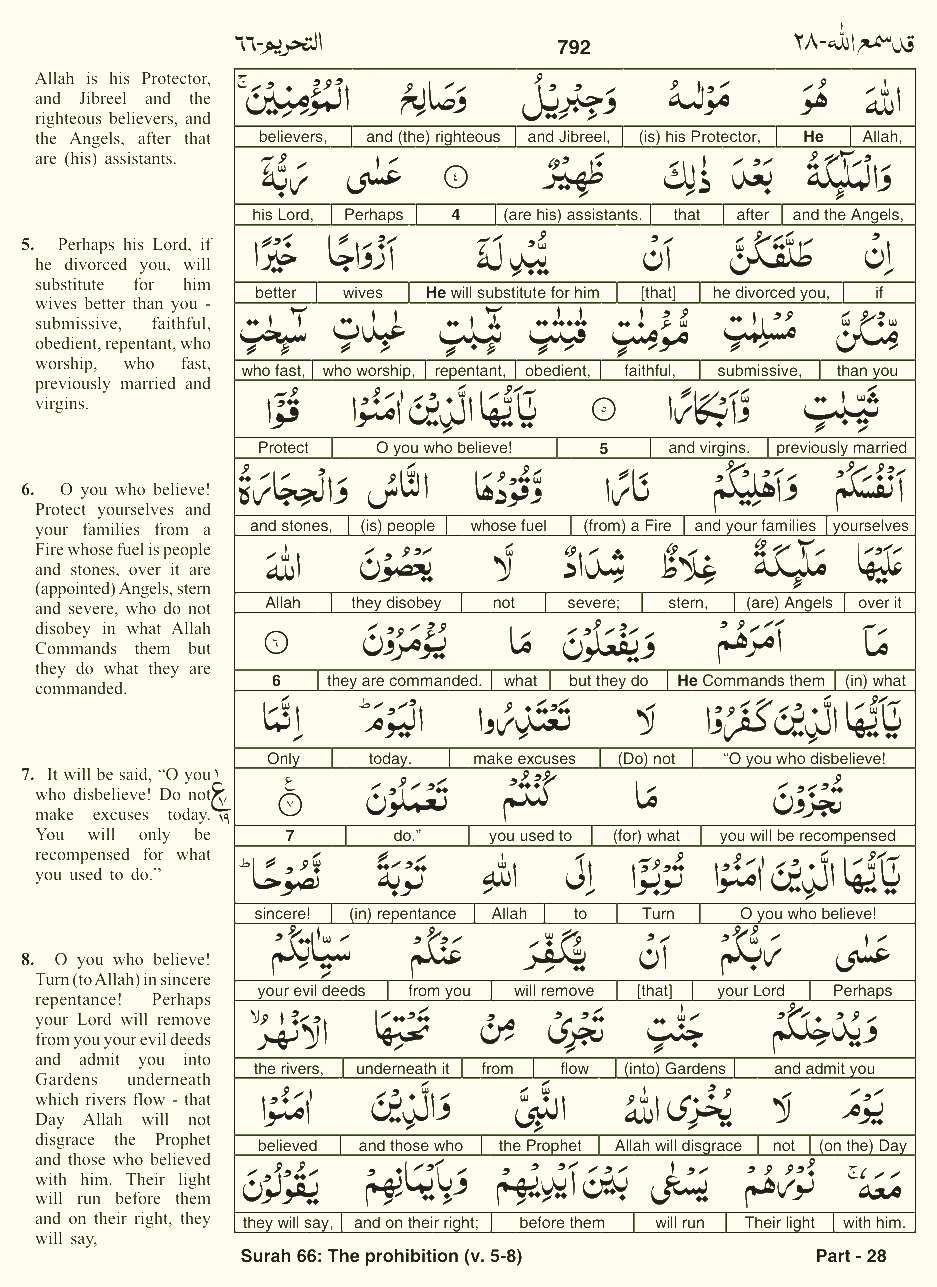 التحريم-٦٦ 792 قد سمع الله-٢٨
Allah is his Protector,
and Jibreel and the
righteous believers, and
the Angels, after that
are (his) assistants.
5. Perhaps his Lord, if
he divorced you, will
substitute for him
wives better than you -
submissive, faithful,
obedient, repentant, who
worship, who fast,
previously married and
virgins.
6. O you who believe!
Protect yourselves and
your families from a
Fire whose fuel is people
and stones, over it are
(appointed) Angels, stern
and severe, who do not
disobey in what Allah
Commands them but
they do what they are
commanded.
7. It will be said, “O you
who disbelieve! Do not
make excuses today.
You will only be
recompensed for what
you used to do.”
8. O you who believe!
Turn (to Allah) in sincere
repentance! Perhaps
your Lord will remove
from you your evil deeds
and admit you into
Gardens underneath
which rivers flow - that
Day Allah will not
disgrace the Prophet
and those who believed
with him. Their light
will run before them
and on their right, they
will say,
اللّٰهَ هُوَ مَوْلٰىهُ وَجِبْرِيْلُ وَصَالِحُ الْمُؤْمِنِيْنَ ۚ
believers, and (the) righteous and Jibreel, (is) his Protector, He Allah,
وَالْمَلٰٓئِكَةُ بَعْدَ ذٰلِكَ ظَهِيْرٌ ٤ عَسٰى رَبُّهٗٓ
his Lord, Perhaps 4 (are his) assistants. that after and the Angels,
اِنْ طَلَّقَكُنَّ اَنْ يُّبْدِلَهٗٓ اَزْوَاجًا خَيْرًا
better wives He will substitute for him [that] he divorced you, if
مِّنْكُنَّ مُسْلِمٰتٍ مُّؤْمِنٰتٍ قٰنِتٰتٍ تٰٓئِبٰتٍ عٰبِدٰتٍ سٰٓئِحٰتٍ
who fast, who worship, repentant, obedient, faithful, submissive, than you
ثَيِّبٰتٍ وَّاَبْكَارًا ٥ يٰٓاَيُّهَا الَّذِيْنَ اٰمَنُوْا قُوْٓا
Protect O you who believe! 5 and virgins. previously married
اَنْفُسَكُمْ وَاَهْلِيْكُمْ نَارًا وَّقُوْدُهَا النَّاسُ وَالْحِجَارَةُ
and stones, (is) people whose fuel (from) a Fire and your families yourselves
عَلَيْهَا مَلٰٓئِكَةٌ غِلَاظٌ شِدَادٌ لَّا يَعْصُوْنَ اللّٰهَ
Allah they disobey not severe; stern, (are) Angels over it
مَآ اَمَرَهُمْ وَيَفْعَلُوْنَ مَا يُؤْمَرُوْنَ ٦
6 they are commanded. what but they do He Commands them (in) what
يٰٓاَيُّهَا الَّذِيْنَ كَفَرُوْا لَا تَعْتَذِرُوا الْيَوْمَ ؕ اِنَّمَا
Only today. make excuses (Do) not “O you who disbelieve!
تُجْزَوْنَ مَا كُنْتُمْ تَعْمَلُوْنَ ٧ ع
ع ٧ ١٩
7 do.” you used to (for) what you will be recompensed
يٰٓاَيُّهَا الَّذِيْنَ اٰمَنُوْا تُوْبُوْٓا اِلَى اللّٰهِ تَوْبَةً نَّصُوْحًا ؕ
sincere! (in) repentance Allah to Turn O you who believe!
عَسٰى رَبُّكُمْ اَنْ يُّكَفِّرَ عَنْكُمْ سَيِّاٰتِكُمْ
your evil deeds from you will remove [that] your Lord Perhaps
وَيُدْخِلَكُمْ جَنّٰتٍ تَجْرِيْ مِنْ تَحْتِهَا الْاَنْهٰرُ ۙ
the rivers, underneath it from flow (into) Gardens and admit you
يَوْمَ لَا يُخْزِى اللّٰهُ النَّبِيَّ وَالَّذِيْنَ اٰمَنُوْا
believed and those who the Prophet Allah will disgrace not (on the) Day
مَعَهٗ ۚ نُوْرُهُمْ يَسْعٰى بَيْنَ اَيْدِيْهِمْ وَبِاَيْمَانِهِمْ يَقُوْلُوْنَ
they will say, and on their right; before them will run Their light with him.
Surah 66: The prohibition (v. 5-8) Part - 28